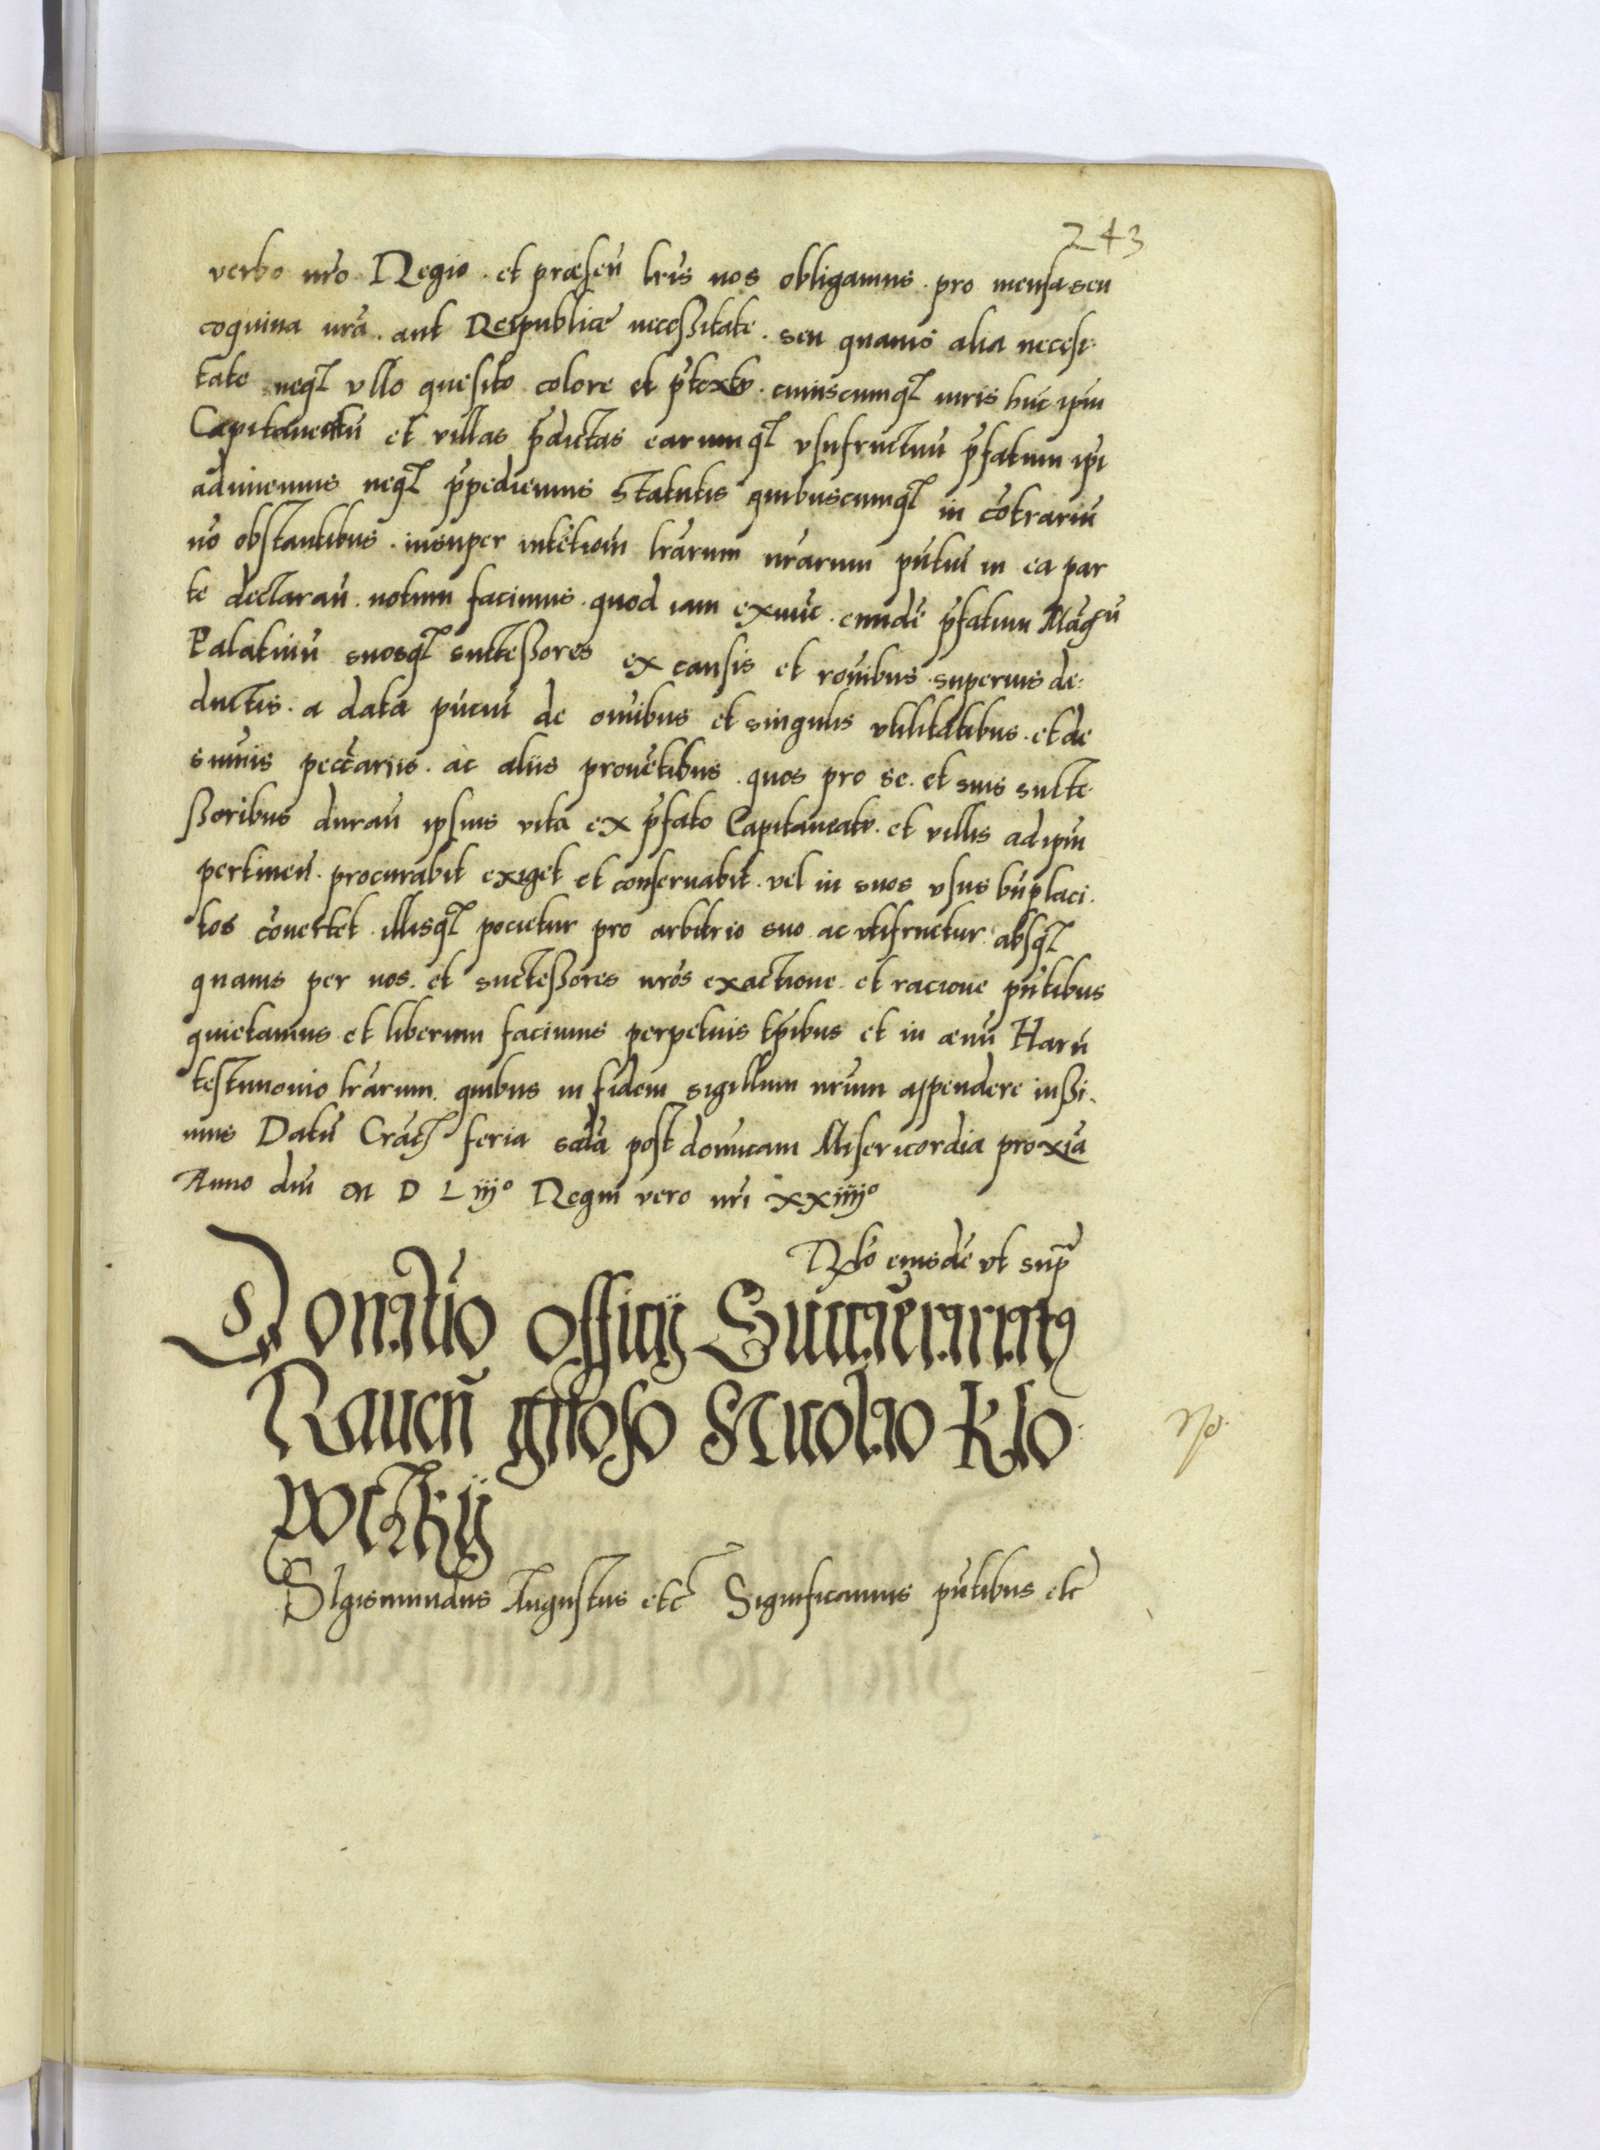 243
verbo nrō Regio. et præsen̄ lris nos obligamus. pro mensa seu
coquina nrā. aut Reipublicæ necessitate. seu quavis alia necessi-
tate neqȝ vllo quesito colore et p̄textu. cuiuscumqȝ iuris huic ipm̄
Capitaneatū et villas p̄dictas earumqȝ vsufructuū p̄fatum ipi
adimemus neqȝ p̄pediemus statutis quibuscumqȝ in cōtrariū
nō obstantibus. insuper intētiom̄ lrārum nrārum pn̄tiū in ea par
te declaran̄. notum facimus. quod iam ex nūc. eundē p̄fatum Mag.cū
Palatinū suosqȝ successores ex causis et ronibus. superius de-
ductis. a data pn̄tiū de omībus et singulis vtilitatibus. et de
sumīs peccāriis. ac aliis provētibus. quos pro se. et suis succe-
ssoribus duran̄ ipsius vita ex p̄fato Capitaneatu. et villis ad ipm̄
pertinen̄. procurabit exiget et conservabit. vel in suos vsus bn̄placi-
tos cōvertet. illisqȝ pocietur pro arbitrio suo ac vtifructur. absqȝ
quavis per nos. et successores nrōs exactione. et racione pn̄tibus
quietamus et liberum facimus perpetuis tp̄ibus et in ævū Harū
testimonio lrārum. quibus in fidem sigillum nrūm appendere iussi-
mus Datū Cracȝ feria scdā post domīcam Misericordia proxīa
Anno dnī M D L iijº Regni vero nrī xxiiijº
Rlō eiusdē vt supra
Donatio officij Succamerariatꝰ
Raven̄ gnōso Nicolao Kło-
wczkÿ
No.
Sigismundus Augustus etc̄ Significamus pn̄tibus etc̄